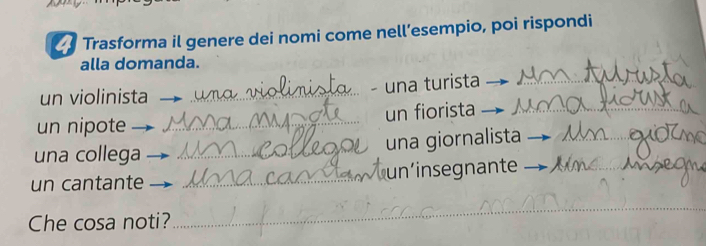 4 Trasforma il genere dei nomi come nell'esempio, poi rispondi
alla domanda.
un violinista → una violinista - una turista → un turista
un nipote → una nipote un fiorista → una fiorista
una collega → un collega una giornalista → un giorna
un cantante → una cantante un'insegnante → un insegna
Che cosa noti?